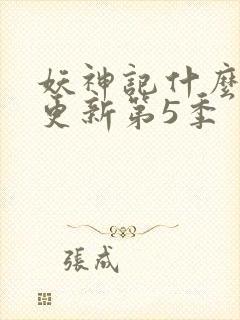 妖神記什麼
更新第5季
張成